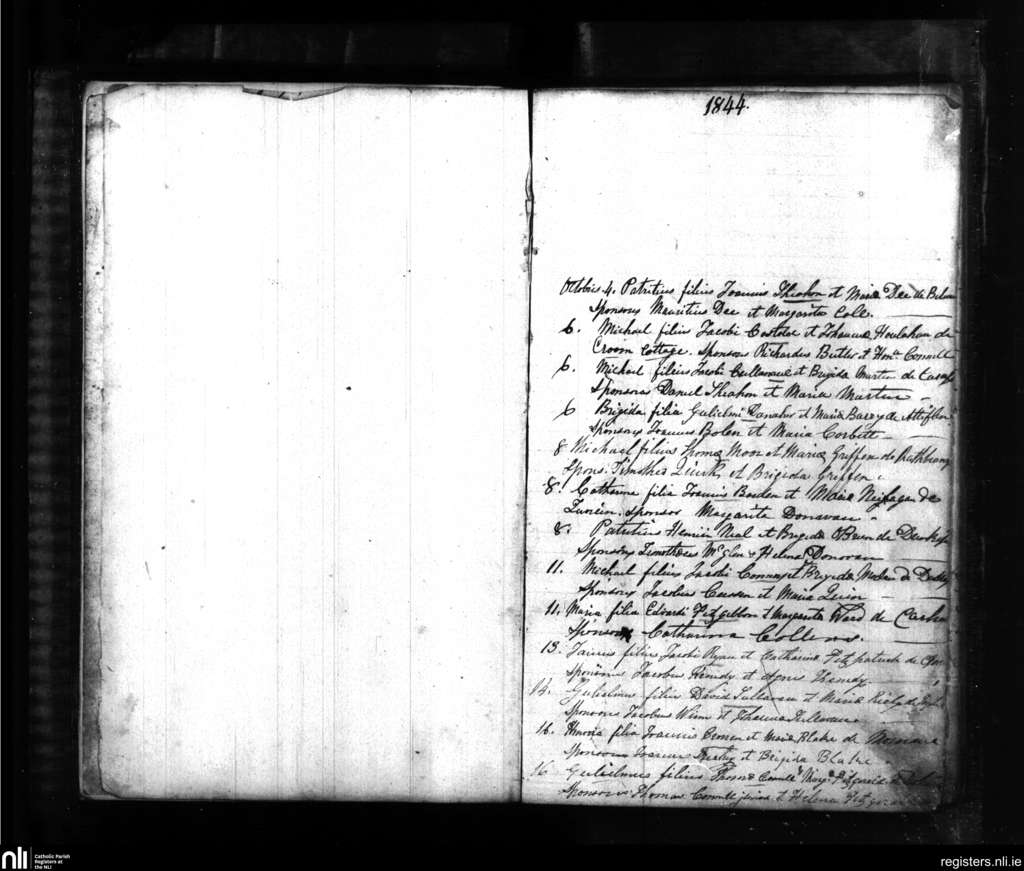 1844.
Octobris 4. Patritius filius Joannis Sheahan et Maria Dee de
Sponsors Mauritius Dee et Margarita Cole.
6. Michael filius Jacobi Costelae et Johanna Houlahan de
Croom Cottage. Sponsors Richardus Butler et Honª Connell
6. Michael filius Jacobi Cullanane et Brigida Martin de
Sponsors Daniel Sheahan et Maria Martin
6 Brigida filia Gulielmi Danaher et Maria Barry de
Sponsors Joannes Bolen et Maria Corbett
8 Michael filius Thoma Moor et Maria Griffen de
Spons. Timotheo Quirk et Brigida Griffen.
8. Catherine filia Joannis Barden et Maria de
Sponsor Margarita Donavan
8. Patritius Henrici Neal et Brigida OBrien de
Sponsors Timotheus McGlin & Helena Donovan
11. Michael filius Jacobi et Brigida de
Sponsors Jacobus et Maria Quin
11. Maria filia Edvardi Fitzgibbon & Margarita Ward de
Sponsor Catharina Collens.
13. filius Jacobi Ryan et Catharina Fitzpatrick de
Sponsores Jacobus Hendy et Agnes Hendy.
14. Gulielmus filius David Sullavan et Maria de
Sponsores Jacobus et Johanna Sullavan
16. Honoria filia Joannis et Maria Blake de
Sponsores Joannes et Brigida Blake
16 Gulielmus filius Thoma Connell Margª Fitzgerald de
Sponsores Thomas Connell junior & Helena Fitzgerald
nli
Catholic Parish
Registers at
the NLI
registers.nli.ie